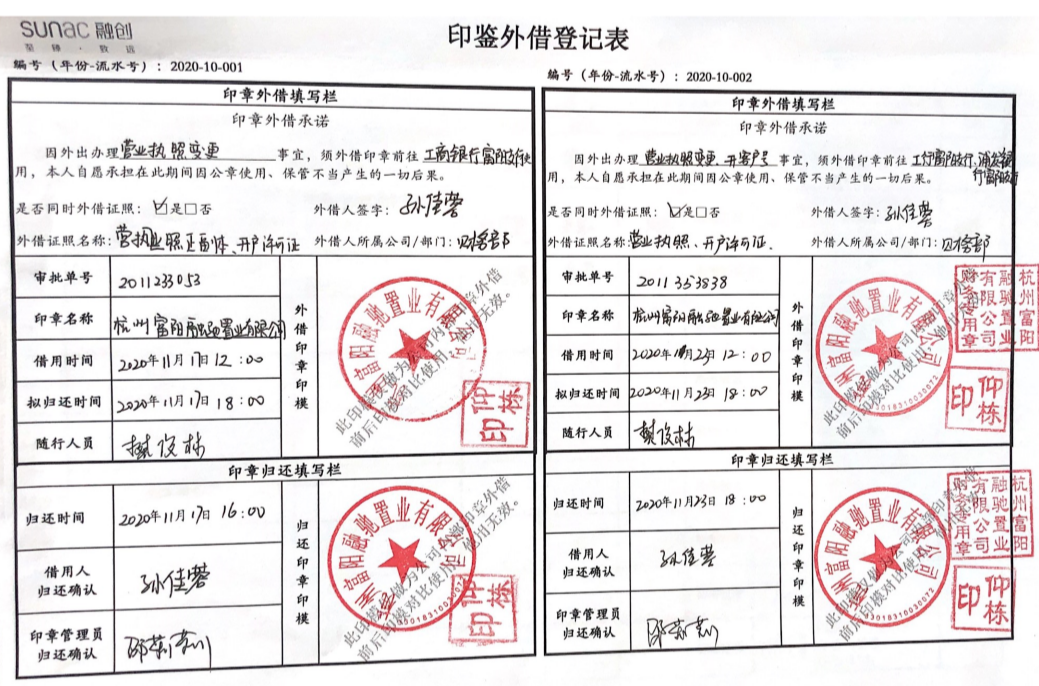 sunac 融创
至臻·致远
印鉴外借登记表
编号（年份-流水号）：2020-10-001
印章外借填写栏
印章外借承诺
因外出办理营业执照变更事宜，须外借印章前往工商银行富阳支行使
用，本人自愿承担在此期间因公章使用、保管不当产生的一切后果。
是否同时外借证照：☑是□否 外借人签字：孙佳蓉
外借证照名称：营业执照正副本、开户许可证 外借人所属公司/部门：财务部
审批单号 2011233053
印章名称 杭州富阳融驰置业有限公司
借用时间 2020年11月17日 12：00
拟归还时间 2020年11月17日 18：00
随行人员 樊俊林
外借印章印模
富阳融驰置业有限
此印模仅驶为公司内部印章外借
前后印模对比使用，他用无效。
仰栋印
印章归还填写栏
归还时间 2020年11月17日 16：00
借用人
归还确认 孙佳蓉
印章管理员
归还确认
归还印章印模
州富阳融驰置业有限公司
此印模仅做为公司内部印章外借
前后印模对比使用，他用无效。
仰栋印
编号（年份-流水号）：2020-10-002
印章外借填写栏
印章外借承诺
因外出办理营业执照变更、开客户号事宜，须外借印章前往工行富阳支行、浦发银
行富阳支行
用，本人自愿承担在此期间因公章使用、保管不当产生的一切后果。
是否同时外借证照：☑是□否 外借人签字：孙佳蓉
外借证照名称：营业执照、开户许可证. 外借人所属公司/部门：财务部
审批单号 2011353838
印章名称 杭州富阳融驰置业有限公司
借用时间 2020年11月23日 12：00
拟归还时间 2020年11月23日 18：00
随行人员 樊俊林
外借印章印模
州富阳融驰置业有限公司
杭州富阳融驰置业有限公司财务专用章
仰栋印
印章归还填写栏
归还时间 2020年11月23日 18：00
借用人
归还确认 孙佳蓉
印章管理员
归还确认
归还印章印模
州富阳融驰置业有限公司
3018310030072
杭州富阳融驰置业有限公司财务专用章
仰栋印